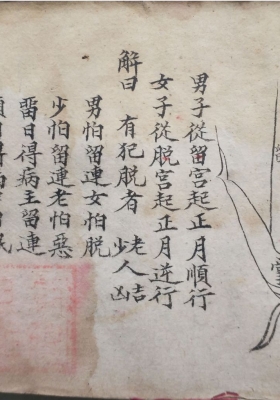 男子從留宮起正月順行
女子從脫宮起正月逆行
解曰 有犯脫者 老人吉 少人凶
男怕留連女怕脫
少怕留連老怕惡
畱日得病主留連